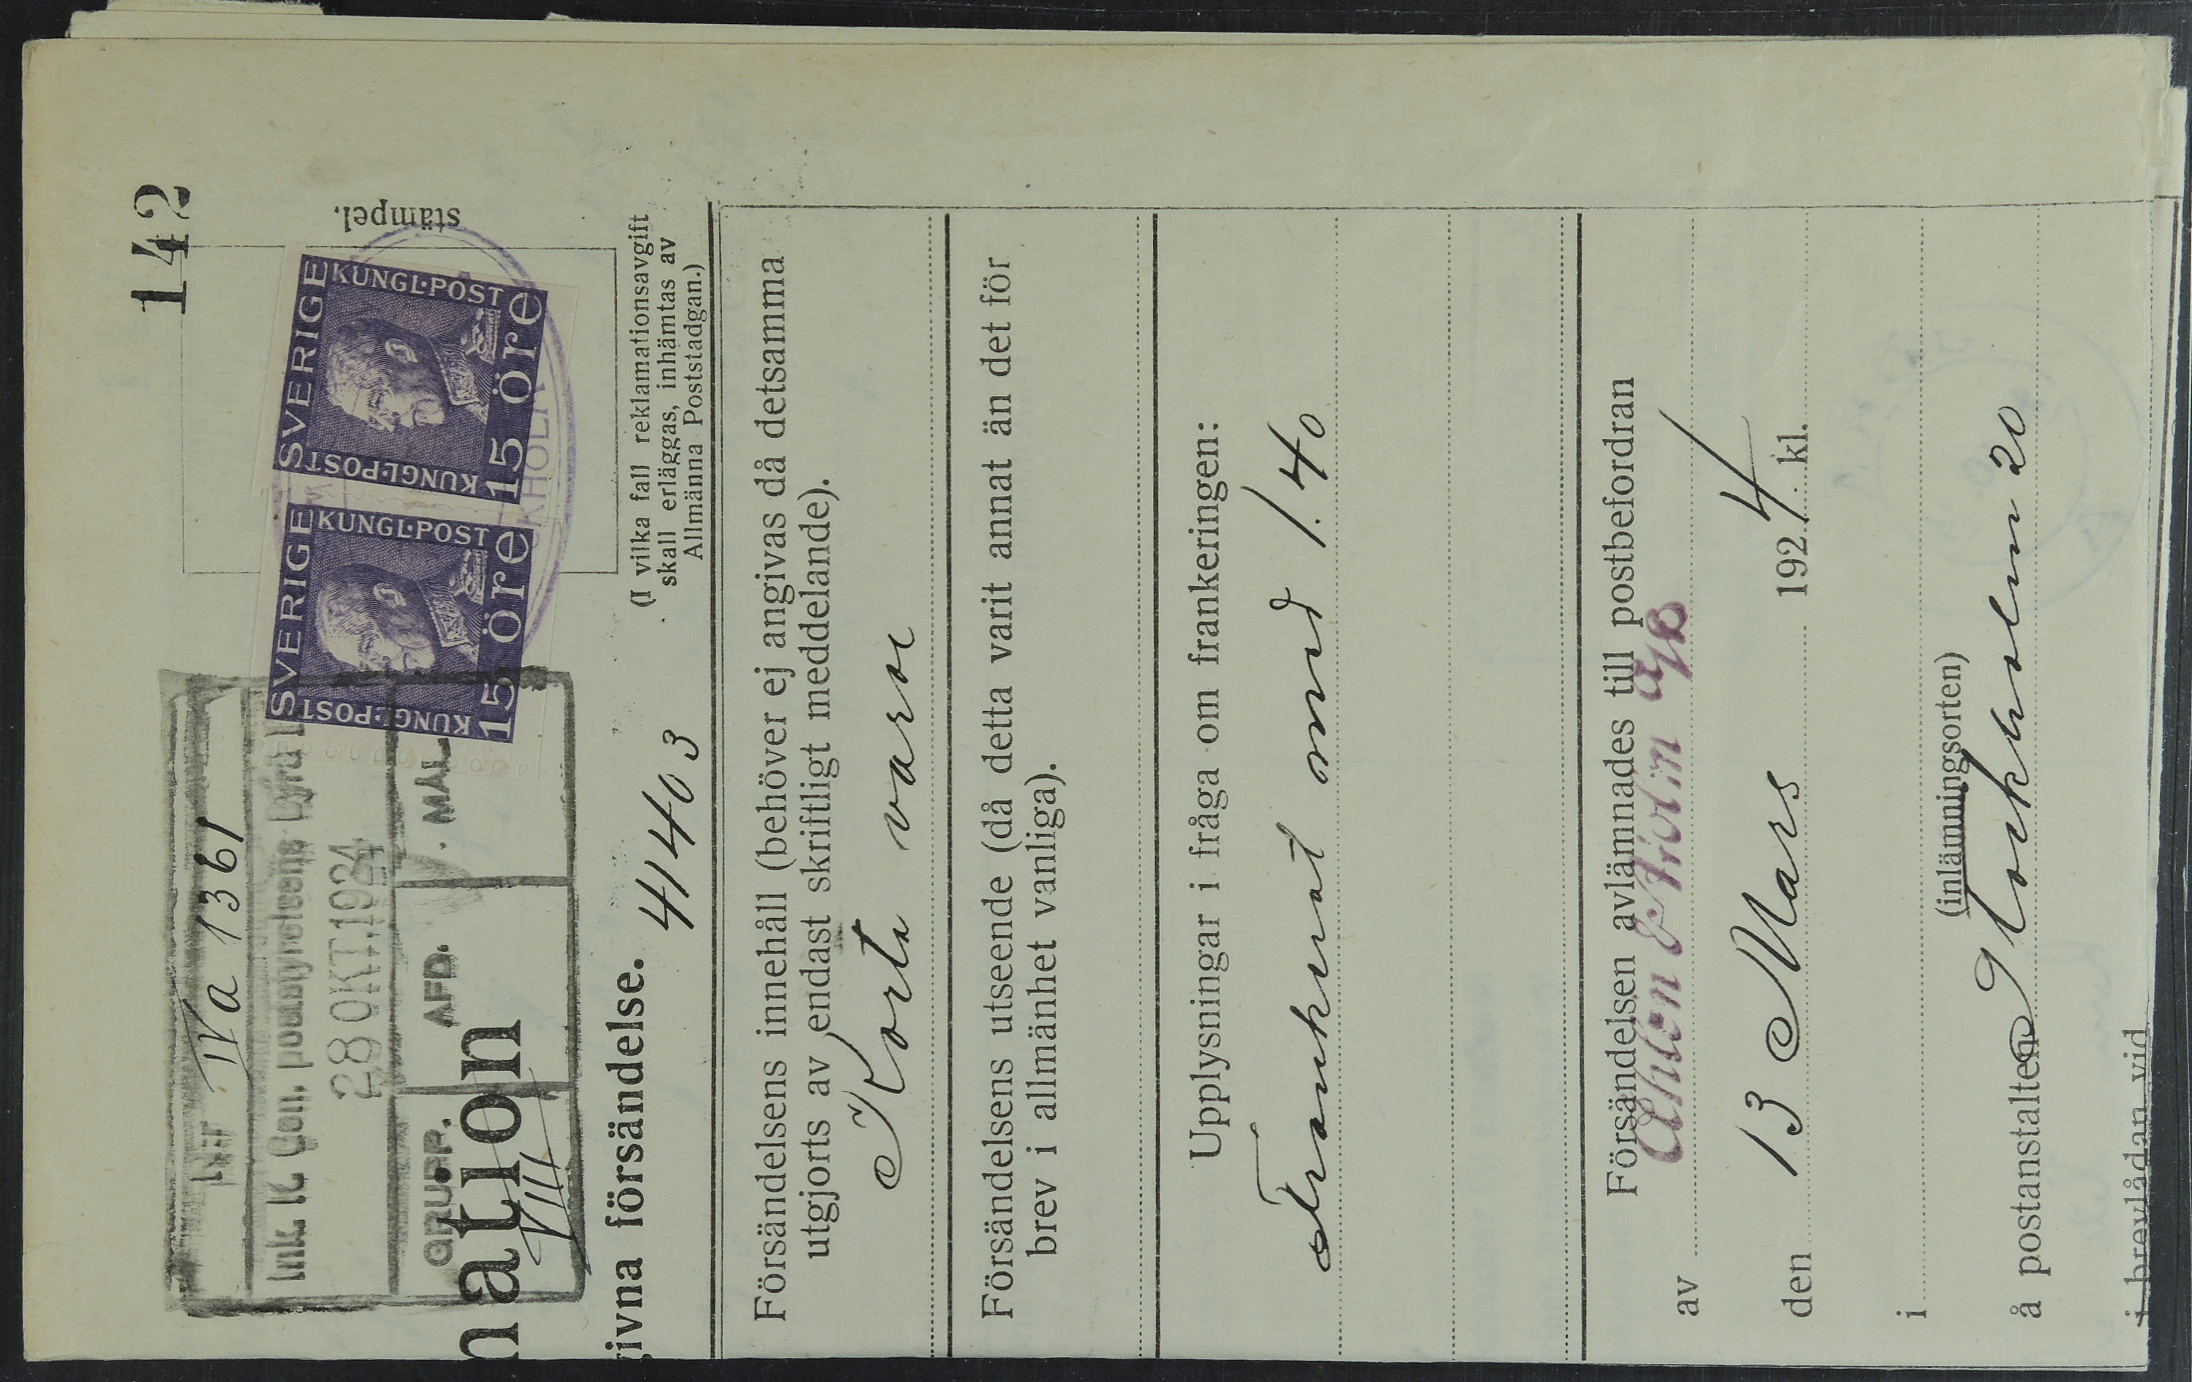 142
stämpel.
SVERIGE
KUNGL·POST
KUNGL·POST
15 öre
SVERIGE
KUNGL·POST
KUNGL·POST
15 öre
KHOLM
IVa 1361
Ink. til Gen. poststyrelsens byrå
28 OKT. 1924
GRUPP. AFD. MÅL
VIII
nation
givna försändelse. 41403
(I vilka fall reklamationsavgift
skall erläggas, inhämtas av
Allmänna Poststadgan.)
Försändelsens innehåll (behöver ej angivas då detsamma
utgjorts av endast skriftligt meddelande).
Korta varor
Försändelsens utseende (då detta varit annat än det för
brev i allmänhet vanliga).
Upplysningar i fråga om frankeringen:
Frankerat med 1.40
Försändelsen avlämnades till postbefordran
av Åhlén & Holm A/B
den 13 Mars 1924 kl.
i
(inlämningsorten)
å postanstalten Stockholm 20
i brevlådan vid